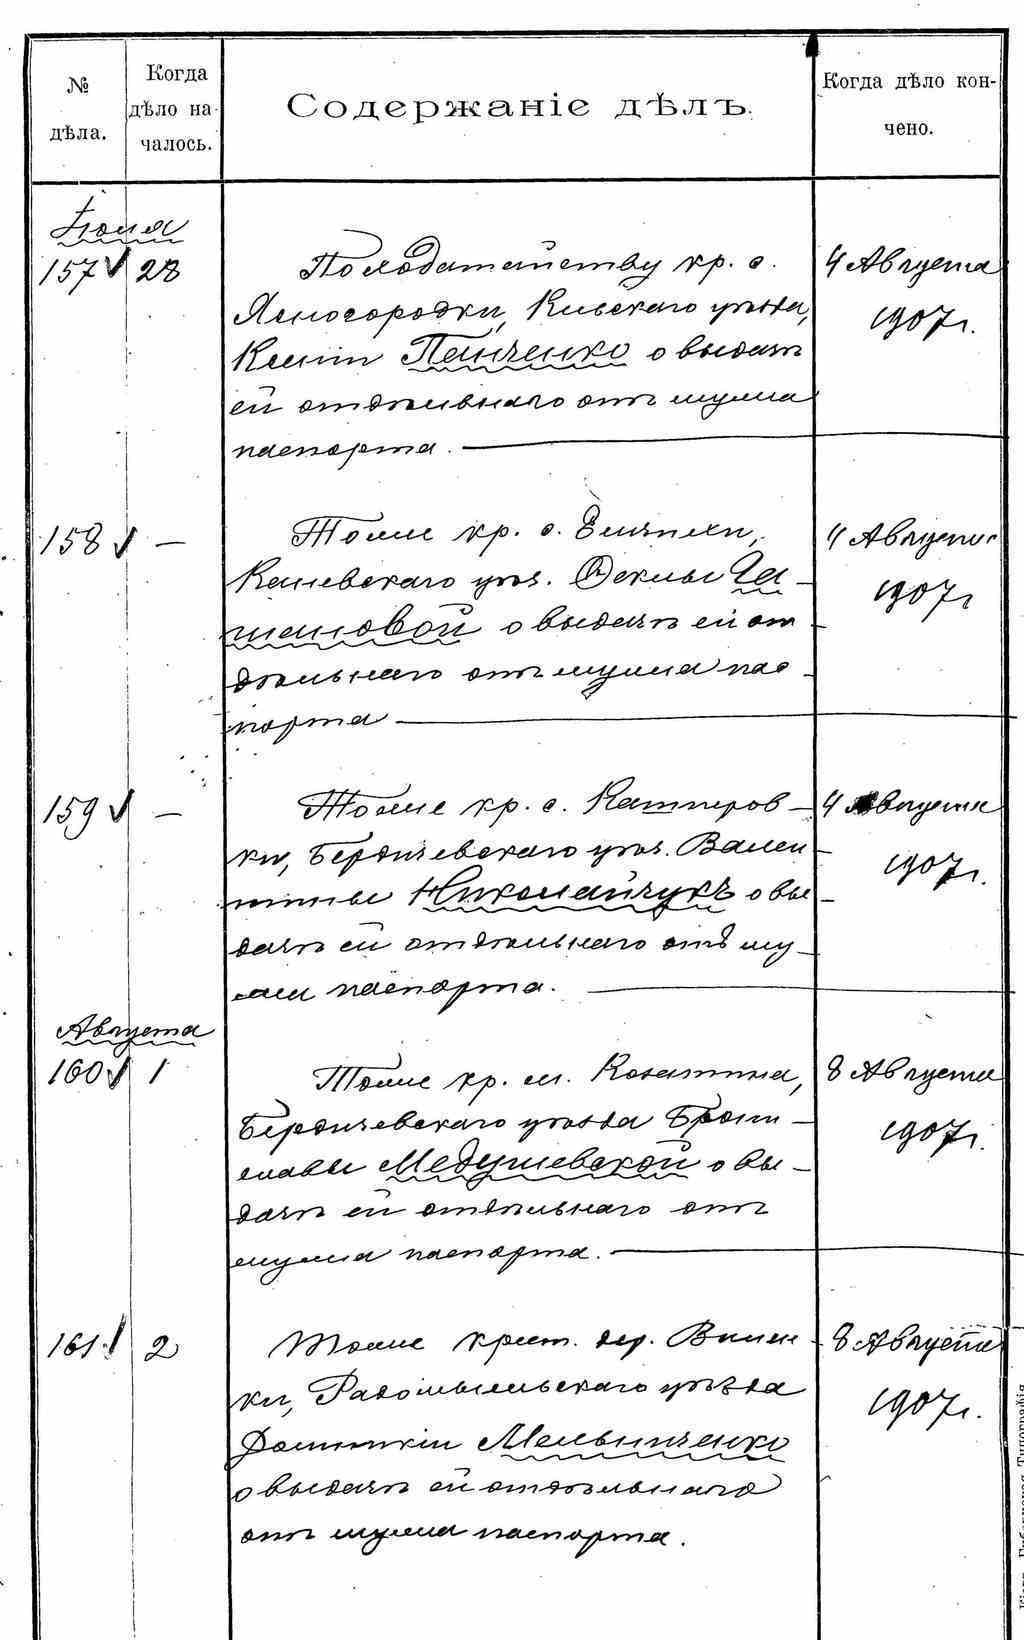 № дѣла.
Когда дѣло началось.
Содержаніе дѣлъ.
Когда дѣло кончено.
Іюля
157 28
По ходатайству кр. с.
Ясногородки, Кіевскаго уѣзда,
Ксеніи Панченко о выдачѣ
ей отдѣльнаго отъ мужа
паспорта.
4 Августа
1907 г.
158 —
Тоже кр. с.
Каневскаго уѣз. Феклы Га-
шановой о выдачѣ ей от-
дѣльнаго отъ мужа пас-
порта
4 Августа
1907 г
159 —
Тоже кр. с. Каштперов-
ки, Бердичевскаго уѣз. Вален-
тины Николайчукъ о вы-
дачѣ ей отдѣльнаго отъ му-
жа паспорта.
4 Августа
1907 г.
Августа
160 1
Тоже кр. м. Казатина,
Бердичевскаго уѣзда Брони-
славы Медушевской о вы-
дачѣ ей отдѣльнаго отъ
мужа паспорта.
8 Августа
1907 г.
161 2
Тоже крест. дер. Вилен-
ки, Радомысльскаго уѣзда
Домникіи Мельниченко
о выдачѣ ей отдѣльнаго
отъ мужа паспорта.
8 Августа
1907 г.
Губернская Типографія